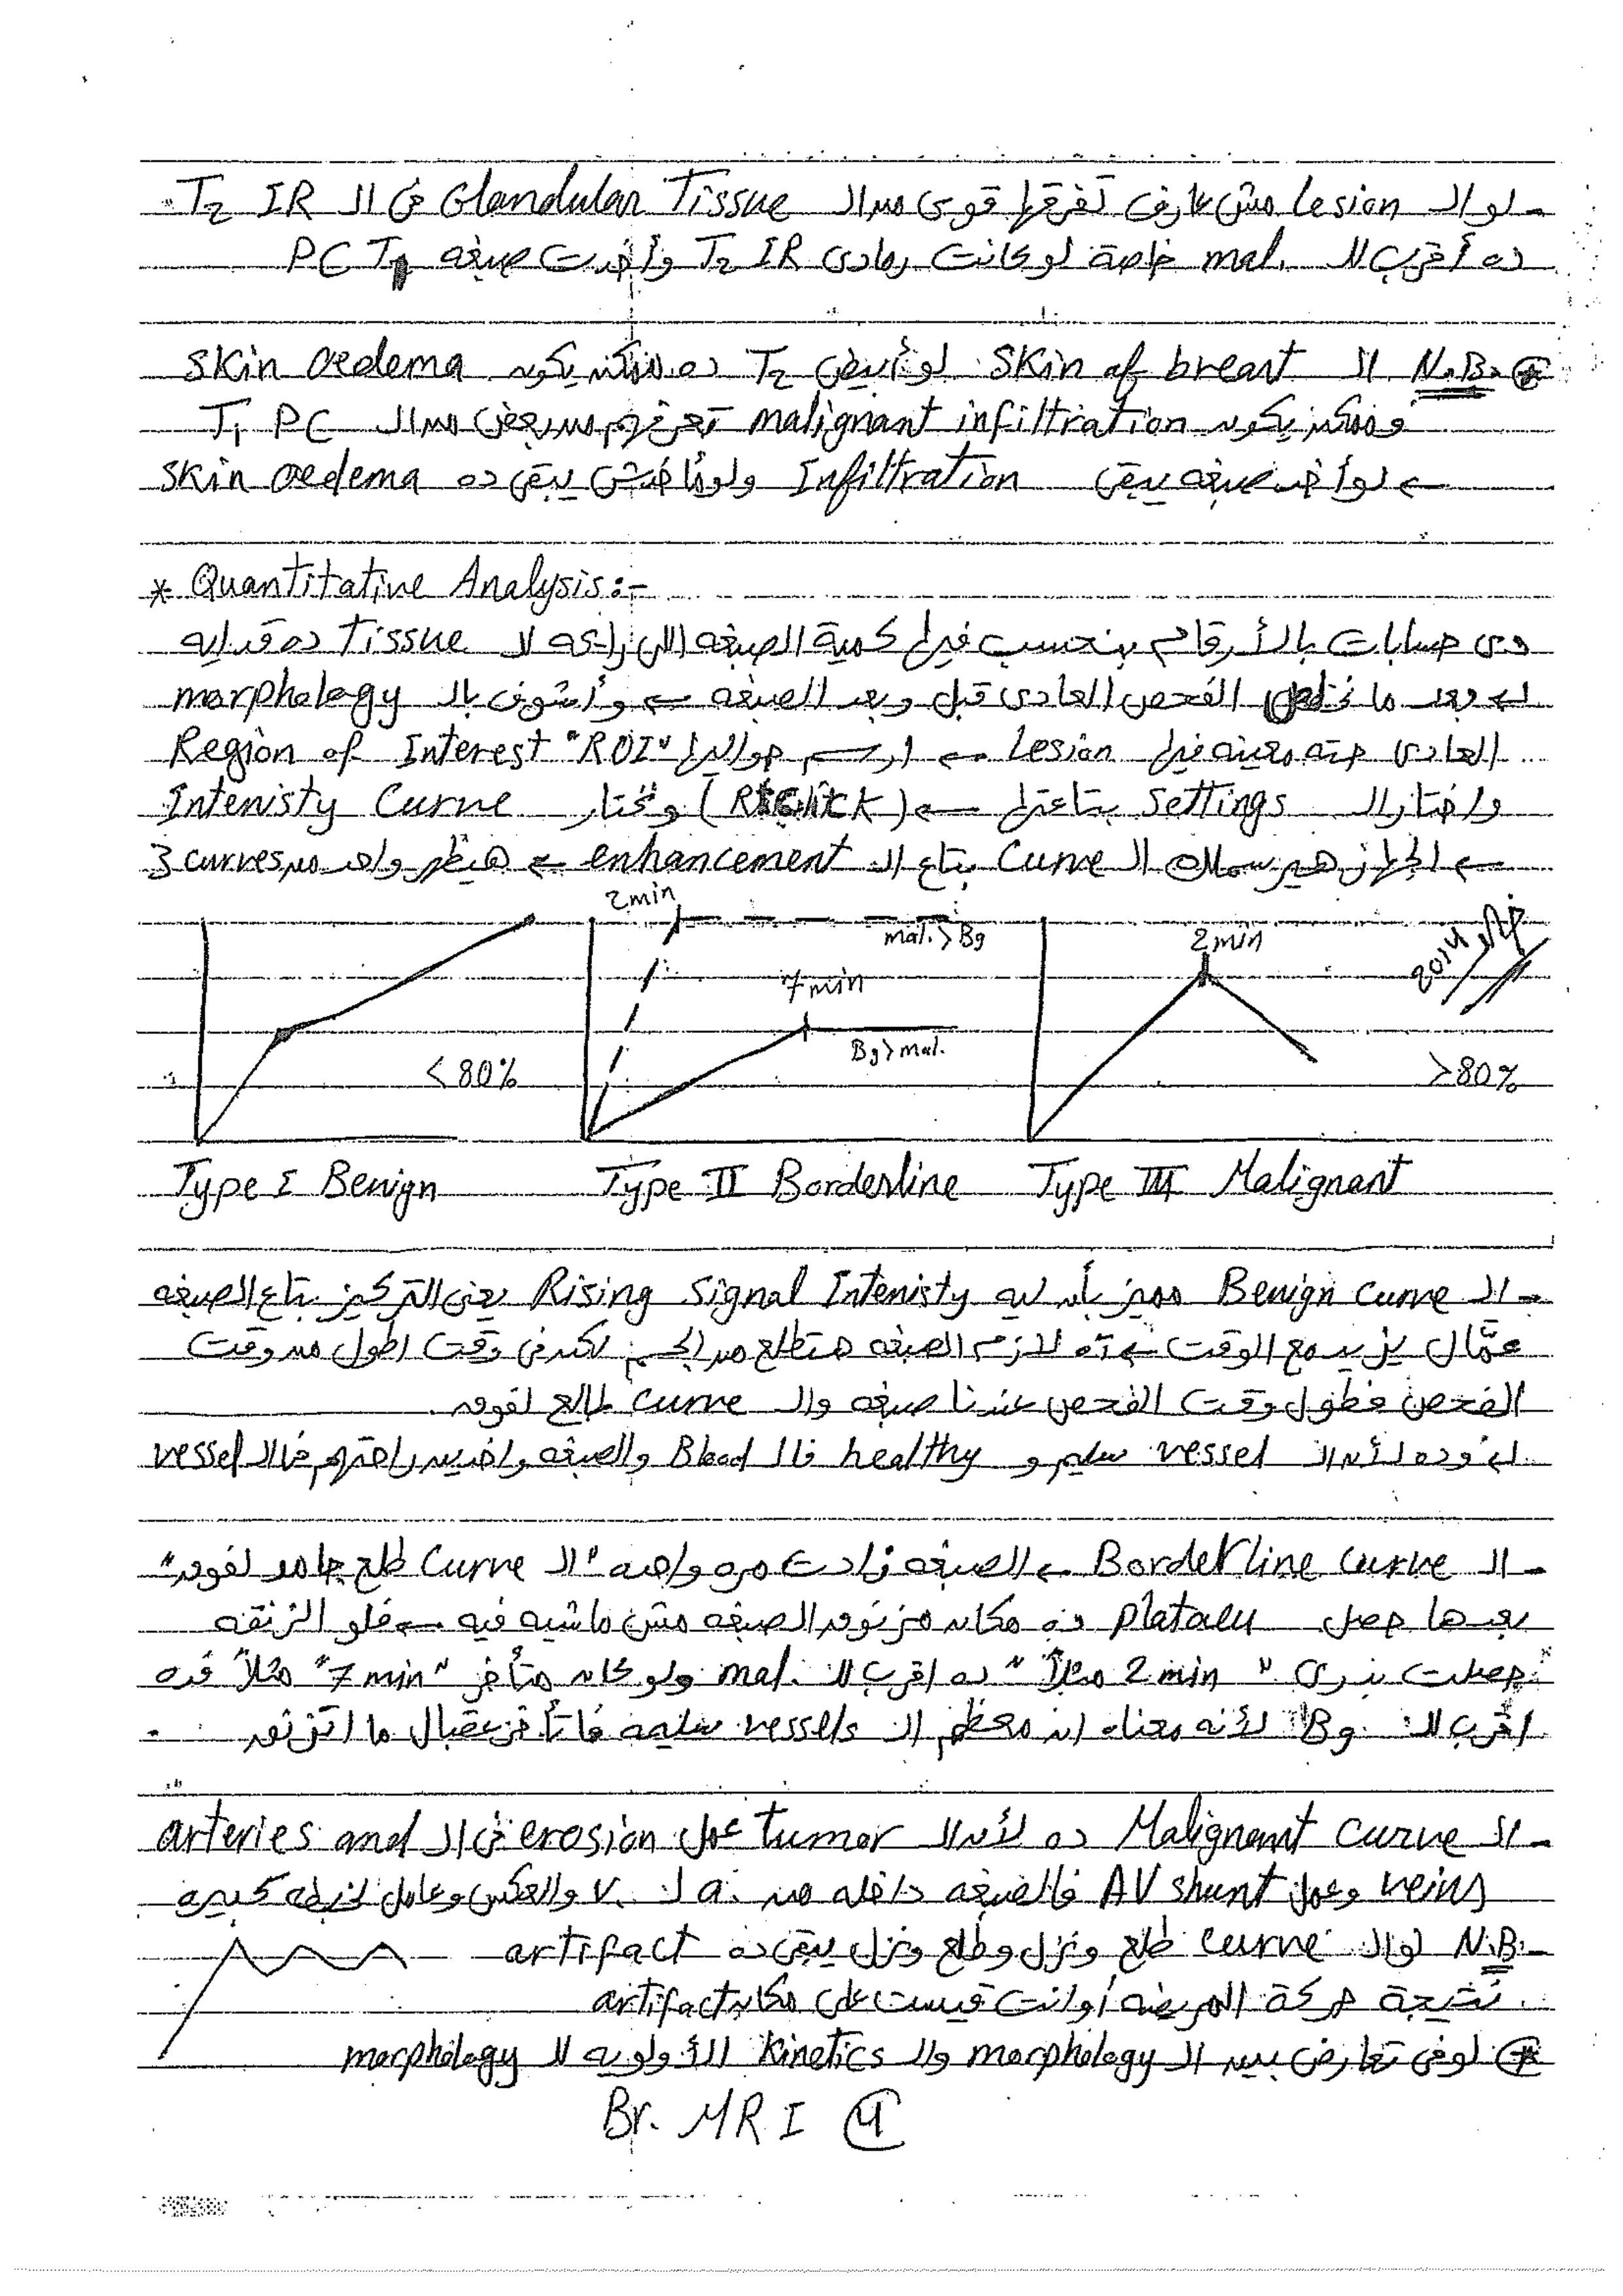 - لو الـ Lesion مش عارف تفرقها قوى من الـ Glandular Tissue فى الـ T2 IR
ده أقرب للـ mal. خاصة لو كانت رمادى T2 IR وأخدت صبغه PC T1
* N.B. الـ Skin of breast لو أبيض T2 ده ممكن يكون skin oedema
وممكن يكون malignant infiltration تعرفهم من بعض من الـ T1 PC
← لو أخد صبغه يبقى Infiltration ولو ماخدش يبقى ده skin oedema
* Quantitative Analysis:-
دى حسابات بالأرقام بنحسب فيها كمية الصبغه اللى رايحه للـ Tissue ده قد ايه
بعد ما نخلص الفحص العادى قبل وبعد الصبغه ← وأشوف بالـ morphology
العادى حته معينه فيها Lesion ← ارسم حواليها "ROI" Region of Interest
واختار الـ Settings بتاعتها ← (Rt Click) ونختار Intenisty Curve
← الجهاز هيرسملك الـ Curve بتاع الـ enhancement ← هيظهر واحد من 3 curves
2 min
mal. > Bg
7 min
Bg > mal.
2 min
2014
< 80%
> 80%
Type I Benign
Type II Borderline
Type III Malignant
- الـ Benign curve مميز بأن ليه Rising Signal Intenisty يعنى التركيز بتاع الصبغه
عمّال يزيد مع الوقت لازم الصبغه هتطلع من الجسم لكن فى وقت اطول من وقت
الفحص فطول وقت الفحص عندنا صبغه والـ curve طالع لفوق.
وده لأن الـ vessel سليم و healthy فالـ Blood والصبغه واخدين راحتهم فالـ vessel
- الـ Borderline curve ← الصبغه زادت مره واحده "الـ Curve طلع جامد لفوق"
بعدها حصل plataeu ده مكان مزنوق الصبغه مش ماشيه فيه ← فلو الزنقه
حصلت بدرى "2 min مثلاً" ده اقرب للـ mal. ولو كان متأخر "7 min" مثلاً فده
اقرب للـ Bg لأنه معناه ان معظم الـ vessels سليمه فاتأخر عقبال ما اتزنق.
- الـ Malignant curve ده لأن الـ tumor عمل erosion فى الـ arteries and
veins وعمل AV shunt فالصبغه داخله من a. لـ v. والعكس وعامل لخبطه كبيره
- N.B. لو الـ curve طلع ونزل وطلع ونزل يبقى ده artifact
نتيجة حركة المريضه أو انت قيست على مكان artifact
* لو فى تعارض بين الـ morphology والـ Kinetics الأولويه للـ morphology
Br. MRI 4